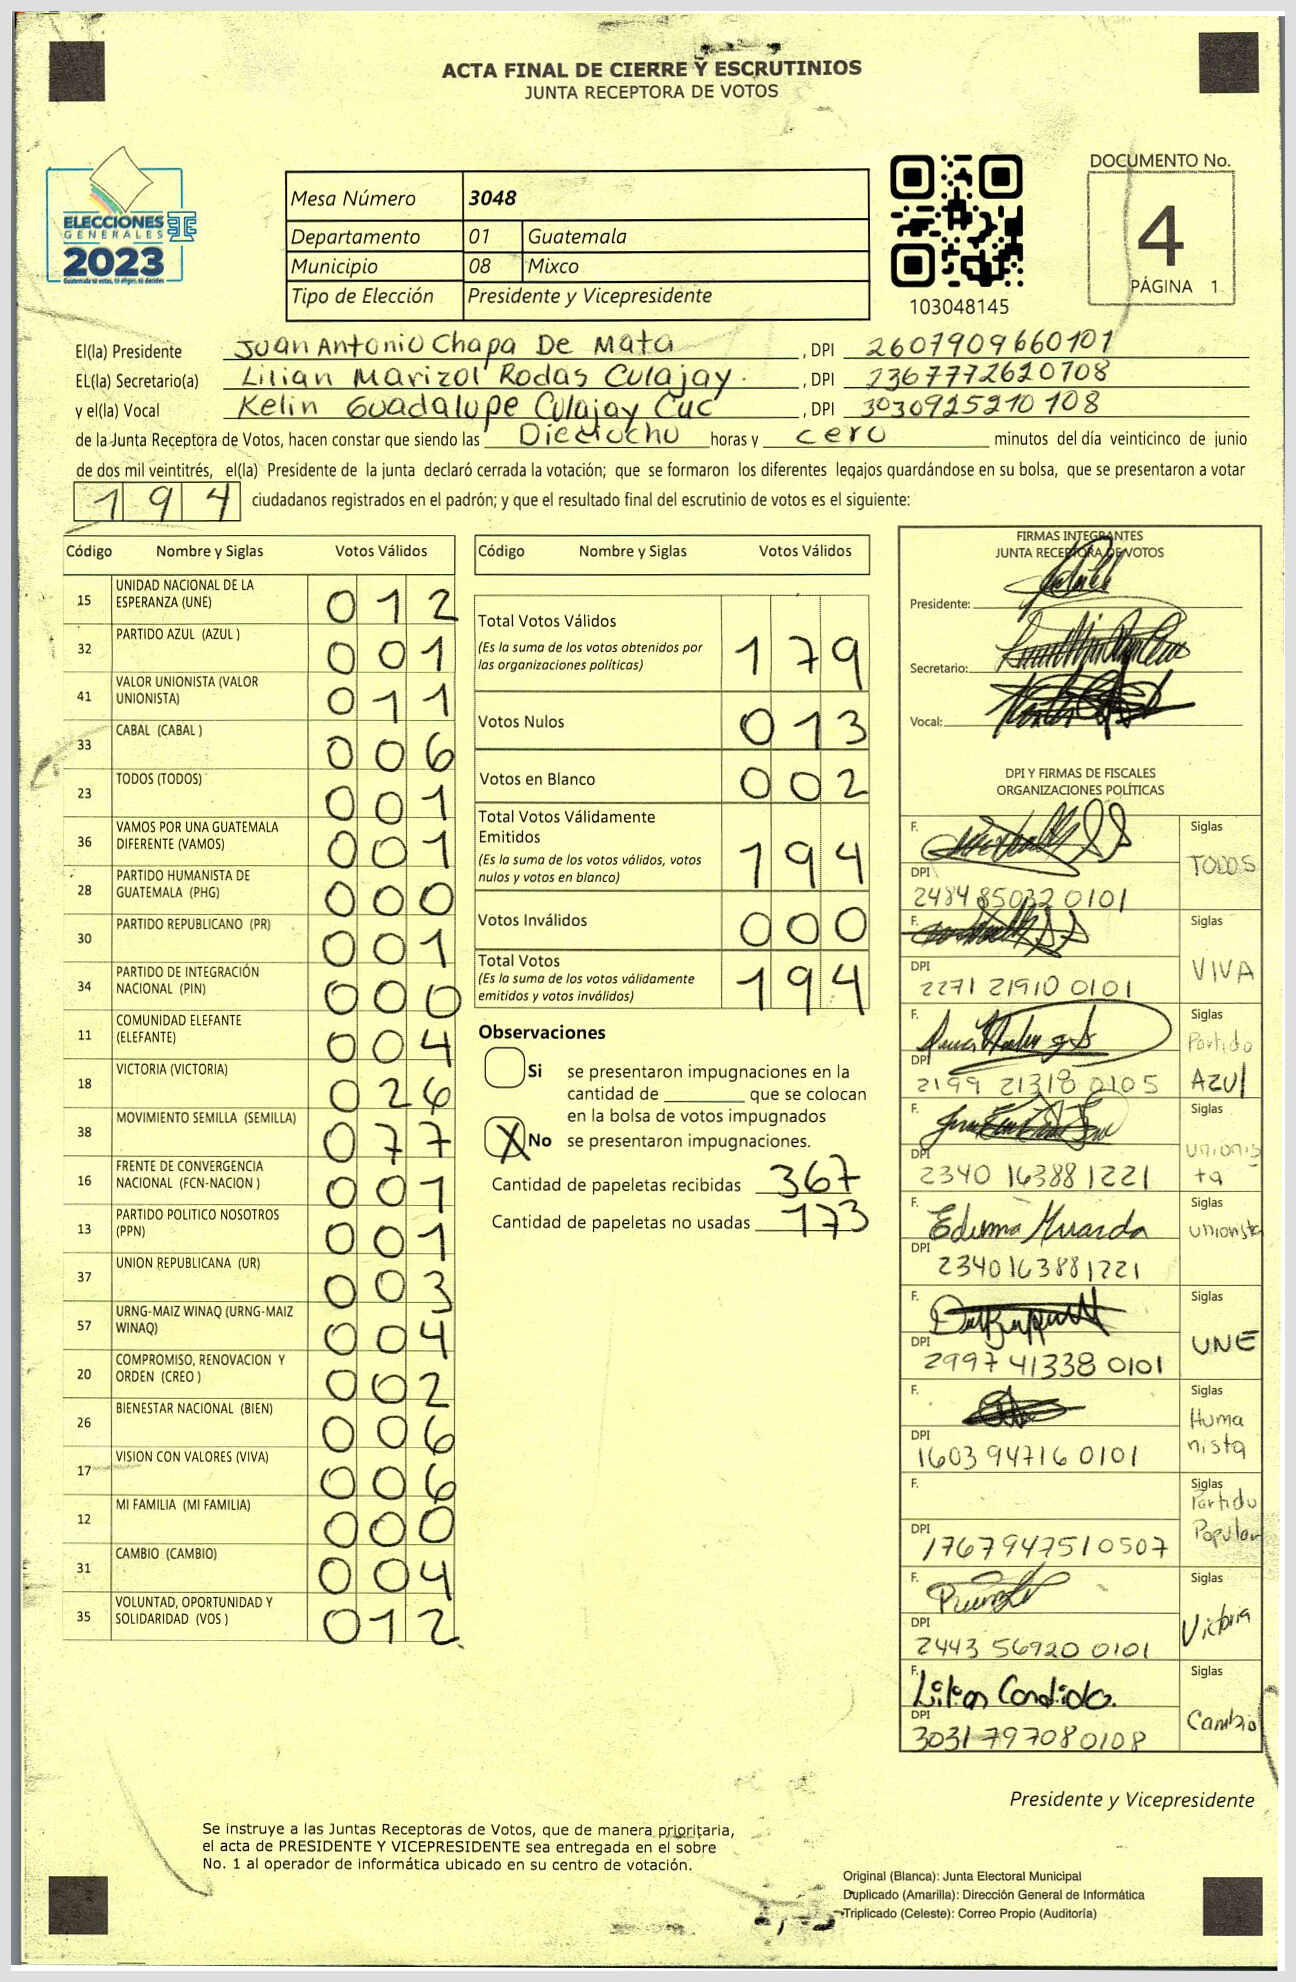 ACTA FINAL DE CIERRE Y ESCRUTINIOS
JUNTA RECEPTORA DE VOTOS
ELECCIONES
GENERALES
2023
Mesa Número 3048
Departamento 01 Guatemala
Municipio 08 Mixco
Tipo de Elección Presidente y Vicepresidente
103048145
DOCUMENTO No.
4
PÁGINA 1
El(la) Presidente Juan Antonio Chapa De Mata , DPI 2607909660101
EL(la) Secretario(a) Lilian Marizol Rodas Culajay. , DPI 2367772620108
y el(la) Vocal Kelin Guadalupe Culajay Cuc , DPI 3030925210108
de la Junta Receptora de Votos, hacen constar que siendo las Dieciocho horas y cero minutos del día veinticinco de junio
de dos mil veintitrés, el(la) Presidente de la junta declaró cerrada la votación; que se formaron los diferentes legajos quardándose en su bolsa, que se presentaron a votar
194 ciudadanos registrados en el padrón; y que el resultado final del escrutinio de votos es el siguiente:
Código Nombre y Siglas Votos Válidos
15 UNIDAD NACIONAL DE LA ESPERANZA (UNE) 012
32 PARTIDO AZUL (AZUL ) 001
41 VALOR UNIONISTA (VALOR UNIONISTA) 011
33 CABAL (CABAL ) 006
23 TODOS (TODOS) 001
36 VAMOS POR UNA GUATEMALA DIFERENTE (VAMOS) 001
28 PARTIDO HUMANISTA DE GUATEMALA (PHG) 000
30 PARTIDO REPUBLICANO (PR) 001
34 PARTIDO DE INTEGRACIÓN NACIONAL (PIN) 000
11 COMUNIDAD ELEFANTE (ELEFANTE) 004
18 VICTORIA (VICTORIA) 026
38 MOVIMIENTO SEMILLA (SEMILLA) 077
16 FRENTE DE CONVERGENCIA NACIONAL (FCN-NACION ) 001
13 PARTIDO POLITICO NOSOTROS (PPN) 001
37 UNION REPUBLICANA (UR) 003
57 URNG-MAIZ WINAQ (URNG-MAIZ WINAQ) 004
20 COMPROMISO, RENOVACION Y ORDEN (CREO ) 002
26 BIENESTAR NACIONAL (BIEN) 006
17 VISION CON VALORES (VIVA) 006
12 MI FAMILIA (MI FAMILIA) 000
31 CAMBIO (CAMBIO) 004
35 VOLUNTAD, OPORTUNIDAD Y SOLIDARIDAD (VOS ) 012
Código Nombre y Siglas Votos Válidos
Total Votos Válidos 179
(Es la suma de los votos obtenidos por
las organizaciones políticas)
Votos Nulos 013
Votos en Blanco 002
Total Votos Válidamente
Emitidos 194
(Es la suma de los votos válidos, votos
nulos y votos en blanco)
Votos Inválidos 000
Total Votos 194
(Es la suma de los votos válidamente
emitidos y votos inválidos)
Observaciones
Si se presentaron impugnaciones en la
cantidad de ________ que se colocan
en la bolsa de votos impugnados
X No se presentaron impugnaciones.
Cantidad de papeletas recibidas 367
Cantidad de papeletas no usadas 173
FIRMAS INTEGRANTES
JUNTA RECEPTORA DE VOTOS
Presidente:
Secretario:
Vocal:
DPI Y FIRMAS DE FISCALES
ORGANIZACIONES POLÍTICAS
F. Siglas TODOS
DPI 2484 85032 0101
F. Siglas VIVA
DPI 2271 21910 0101
F. Siglas Partido AZUl
DPI 2199 21318 0105
F. Siglas unionis ta
DPI 2340 16388 1221
F. Siglas unionista
DPI 2340163881221
F. Siglas UNE
DPI 2997 41338 0101
F. Siglas Huma nista
DPI 1603 94716 0101
F. Siglas Partido Popular
DPI 1767947510507
F. Siglas Victoria
DPI 2443 56920 0101
F. Lilian Candido. Siglas Cambio
DPI 3031 79708 0108
Presidente y Vicepresidente
Se instruye a las Juntas Receptoras de Votos, que de manera prioritaria,
el acta de PRESIDENTE Y VICEPRESIDENTE sea entregada en el sobre
No. 1 al operador de informática ubicado en su centro de votación.
Original (Blanca): Junta Electoral Municipal
Duplicado (Amarilla): Dirección General de Informática
Triplicado (Celeste): Correo Propio (Auditoría)